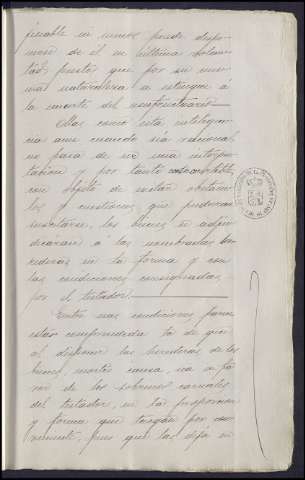 puede dispo-
ner de él en última volun-
tad, puesto que por su mis-
ma naturaleza se estingue á
la muerte del usufructuario.
Mas como esta inteligen-
cia aun cuando sea racional
no pasa de ser una interpre-
tacion y por tanto
con objeto de evitar obstácu-
los y cuestiones que pudieran
suscitarse, los bienes se adju-
dicaran á las nombradas he-
rederas en la forma y con
las condiciones consignadas
por el testador.
Entre esas condiciones parece
estar comprendida la de que
al disponer las herederas de los
bienes, mortis causa, sea á fa-
vor de los sobrinos carnales
del testador, en la proporcion
y forma que tengan por con-
veniente, pues que las deja en